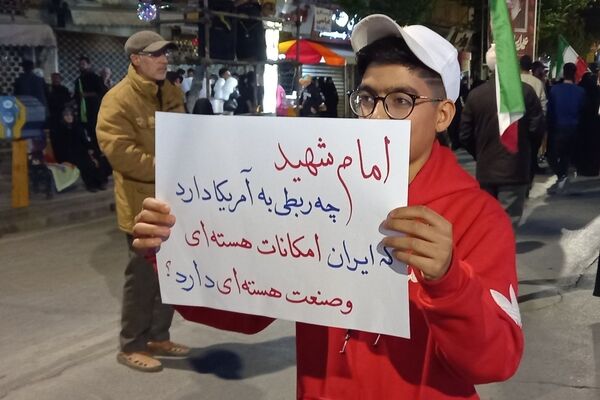 امام شهید
چه ربطی به آمریکا دارد
که ایران امکانات هسته‌ای
و صنعت هسته‌ای دارد؟